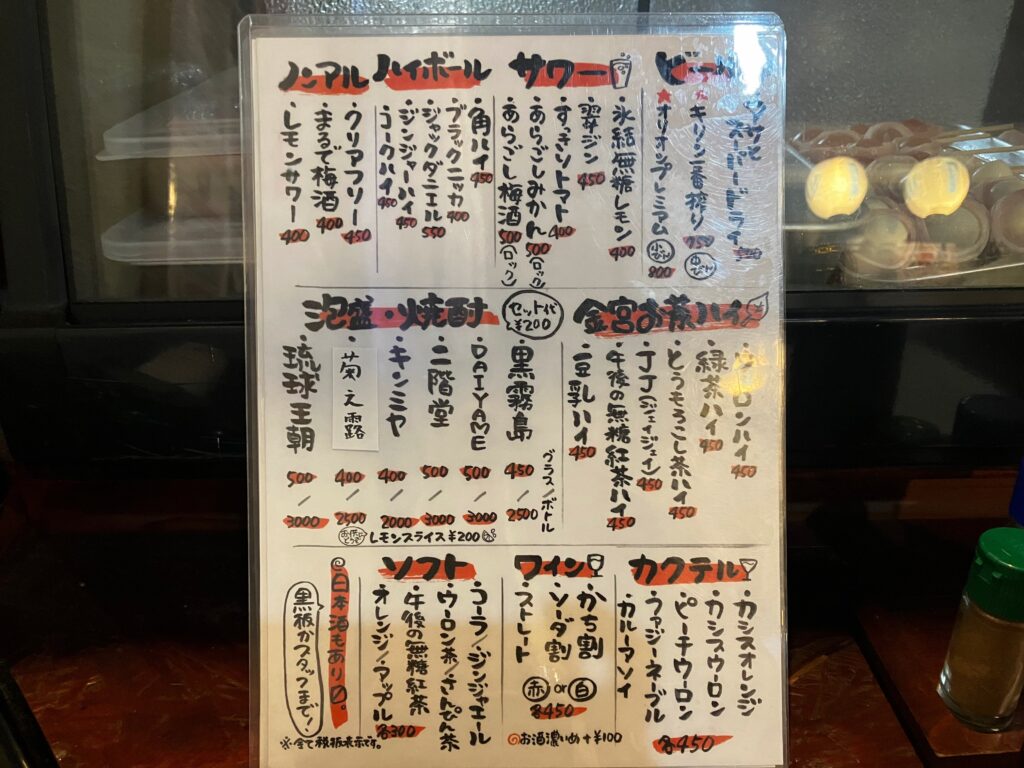 ビール
・アサヒスーパードライ
・キリン一番搾り 750 中びん
★オリオンプレミアム 小びん 800
サワー
・氷結無糖レモン 400
・翠ジン 450
・すっきりトマト 400
・あらごしみかん 500(ロック)
・あらごし梅酒 500(ロック)
ハイボール
・角ハイ 450
・ブラックニッカ 400
・ジャックダニエル 550
・ジンジャーハイ 450
・コークハイ 450
ノンアル
・クリアフリー 450
・まるで梅酒 400
・レモンサワー 400
金宮お茶ハイ
・ウーロンハイ 450
・緑茶ハイ 450
・とうもろこし茶ハイ 450
・JJ(ジェイジェイ) 450
・午後の無糖紅茶ハイ 450
・豆乳ハイ 450
泡盛・焼酎
セット代 ¥200
グラス/ボトル
・黒霧島 450/2500
・DAIYAME 500/3000
・二階堂 500/3000
・キンミヤ 400/2000
・菊之露 400/2500
・琉球王朝 500/3000
レモンスライス¥200
カクテル
・カシスオレンジ
・カシスウーロン
・ピーチウーロン
・ファジーネーブル
・カルーアソイ
各450
ワイン
・かち割
・ソーダ割
・ストレート
赤 or 白
各450
お酒濃いめ+¥100
ソフト
・コーラ/ジンジャエール
・ウーロン茶/さんぴん茶
・午後の無糖紅茶
・オレンジ/アップル
各300
日本酒もあり〼。
黒板かスタッフまで!
※全て税抜表示です。